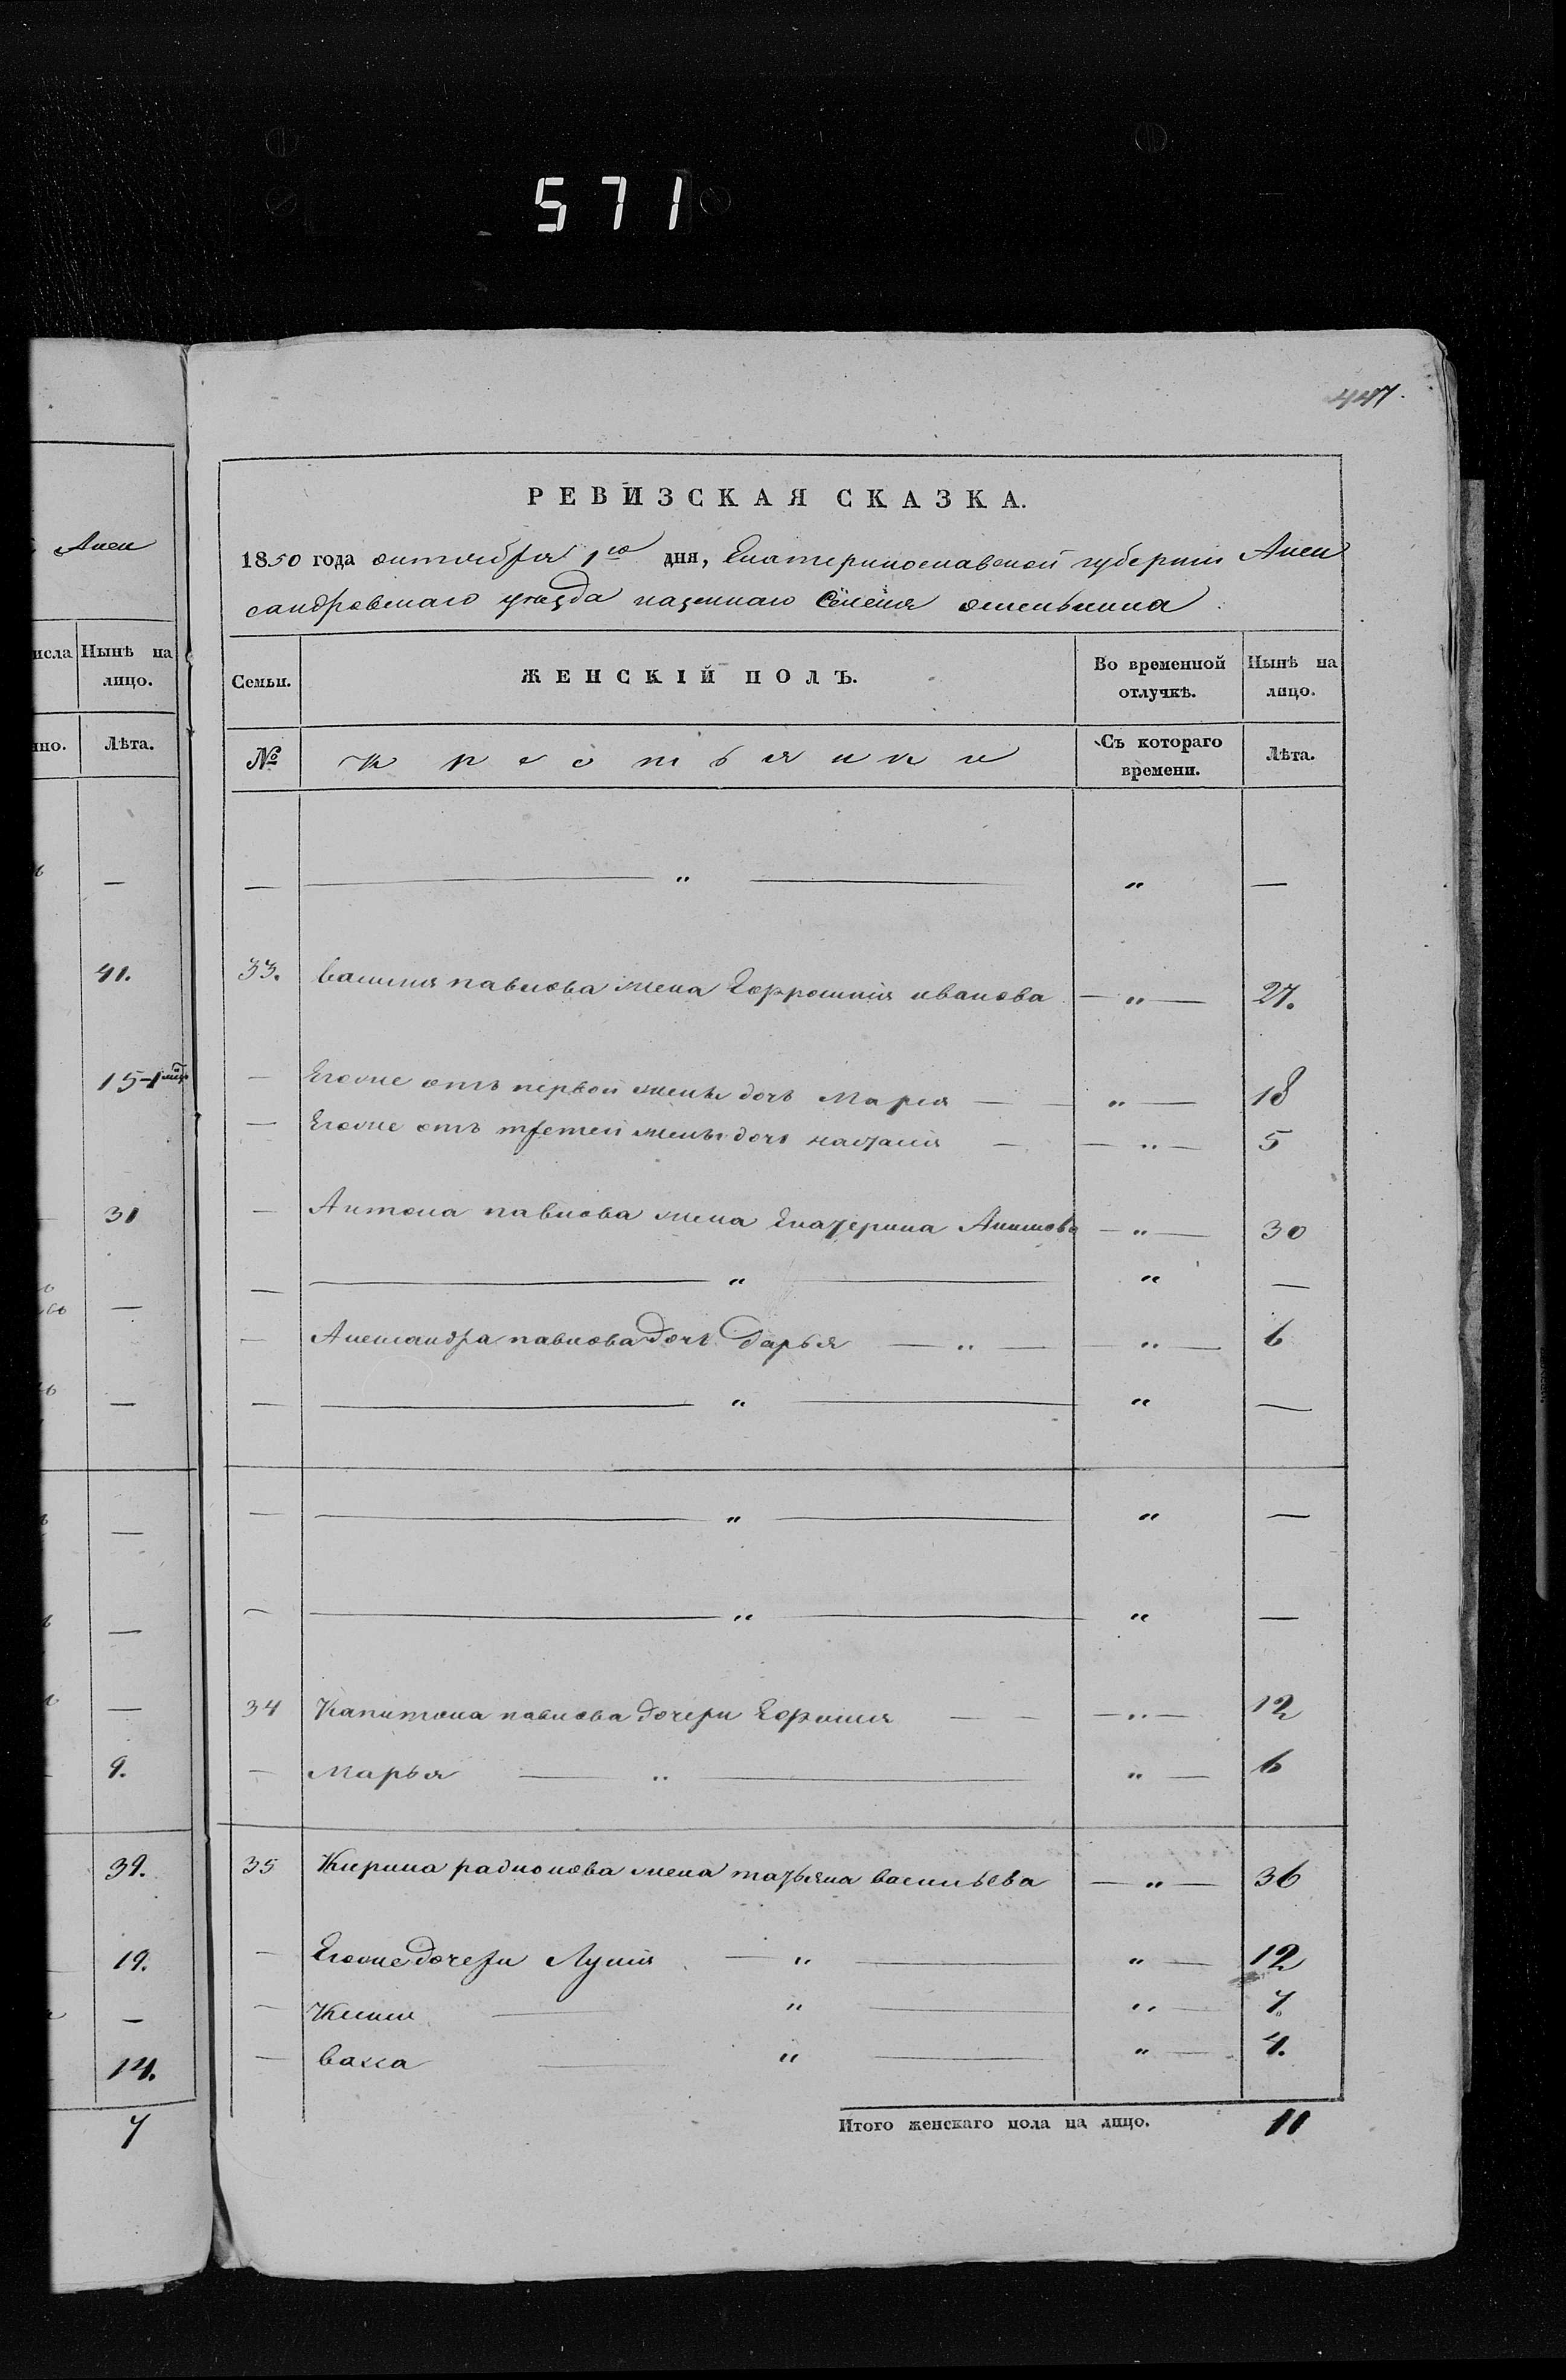 571
447.
Алек
РЕВИЗСКАЯ СКАЗКА.
1850 года октября 1го дня, Екатеринославской губернии Алек
сандровскаго уезда казеннаго Селения
исла
Нынѣ на
лицо.
Семьи.
ЖЕНСКІЙ ПОЛЪ.
Во временной
отлучкѣ.
Нынѣ на
лицо.
нно.
Лѣта.
№
Крестьянки
Съ котораго
времени.
Лѣта.
— — „ — „ —
41.
33. василия павлова жена Евфросиния иванова — „ — 27.
15-1
— Егоже отъ первой жены дочь Мария — — „ — 18
— Егоже отъ третей жены дочь наталия — — „ — 5
31
— Антона павлова жена Екатерина Акимова — „ — 30
— — „ — „ —
— Александра павлова дочь Дарья — „ — — „ — 6
— — „ — „ —
— — „ — „ —
— — „ — „ —
34 Капитона павлова дочери Ефимия — — — „ — 12
9.
— Марья — „ — „ — 6
39.
35 Кирила радионова жена татьяна васильева — „ — 36
19.
— Егоже дочери Лукия — „ — „ — 12
— Ксения — „ — „ — 7.
14.
— васса — „ — „ — 4.
7
Итого женскаго пола на лицо. 11